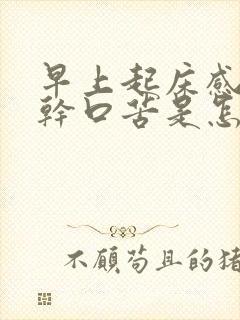 早上起床感
幹口苦是怎
不願苟且的猪